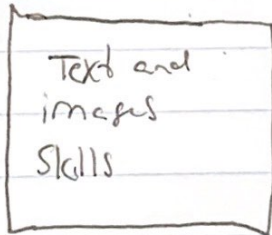 Text and
images
Skills